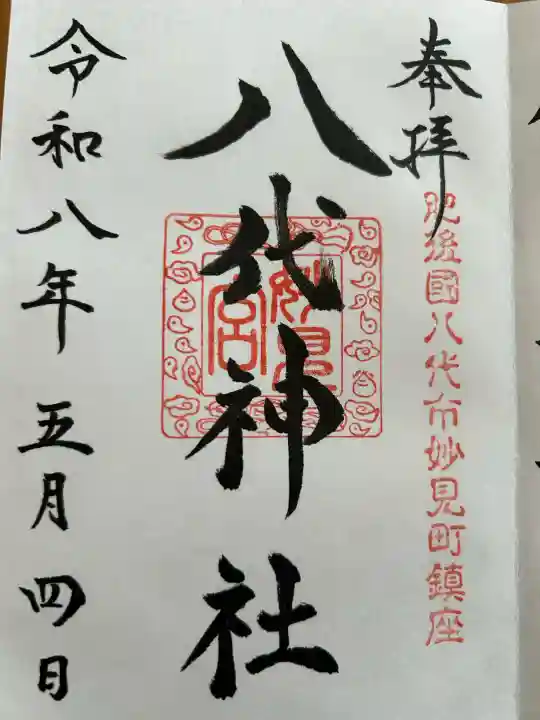 奉拝
肥後國八代市妙見町鎮座
八代神社
妙見宮
令和八年五月四日